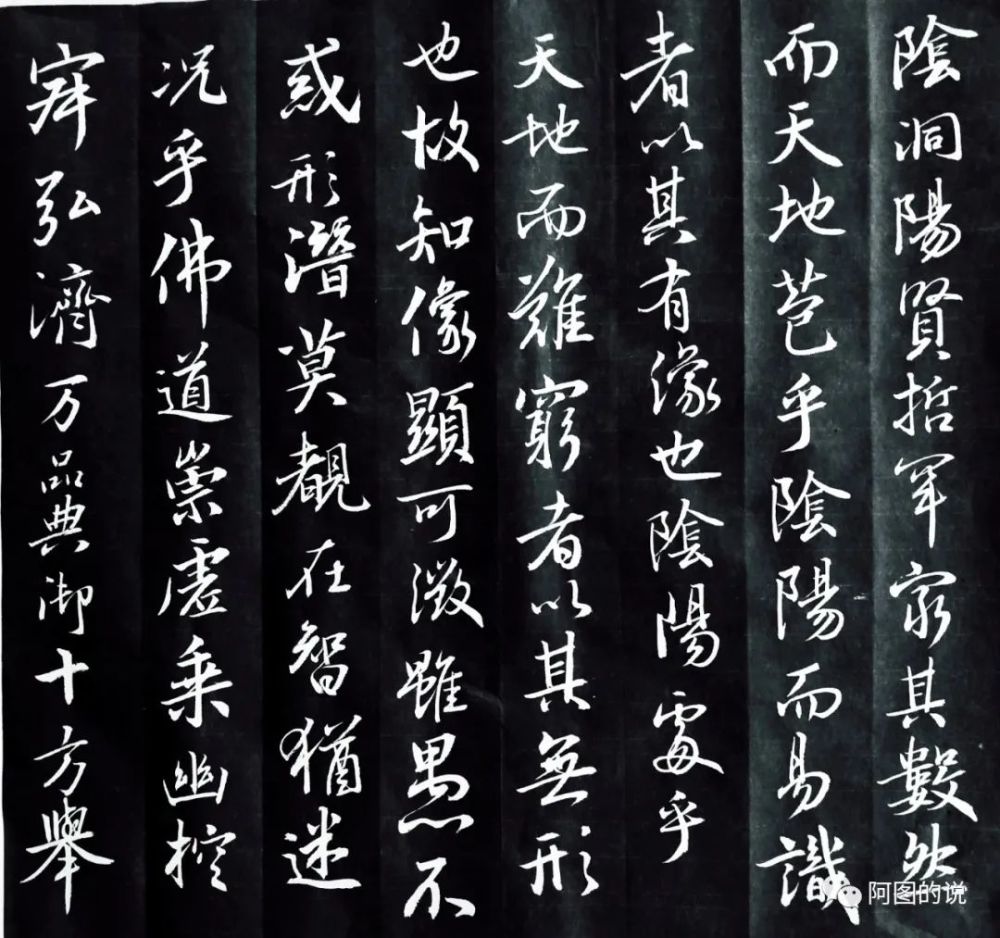 陰洞陽賢哲罕窮其數然
而天地苞乎陰陽而易識
者以其有像也陰陽處乎
天地而難窮者以其無形
也故知像顯可徵雖愚不
惑形潛莫覩在智猶迷
況乎佛道崇虛乘幽控
寂弘濟万品典御十方舉
阿图的说